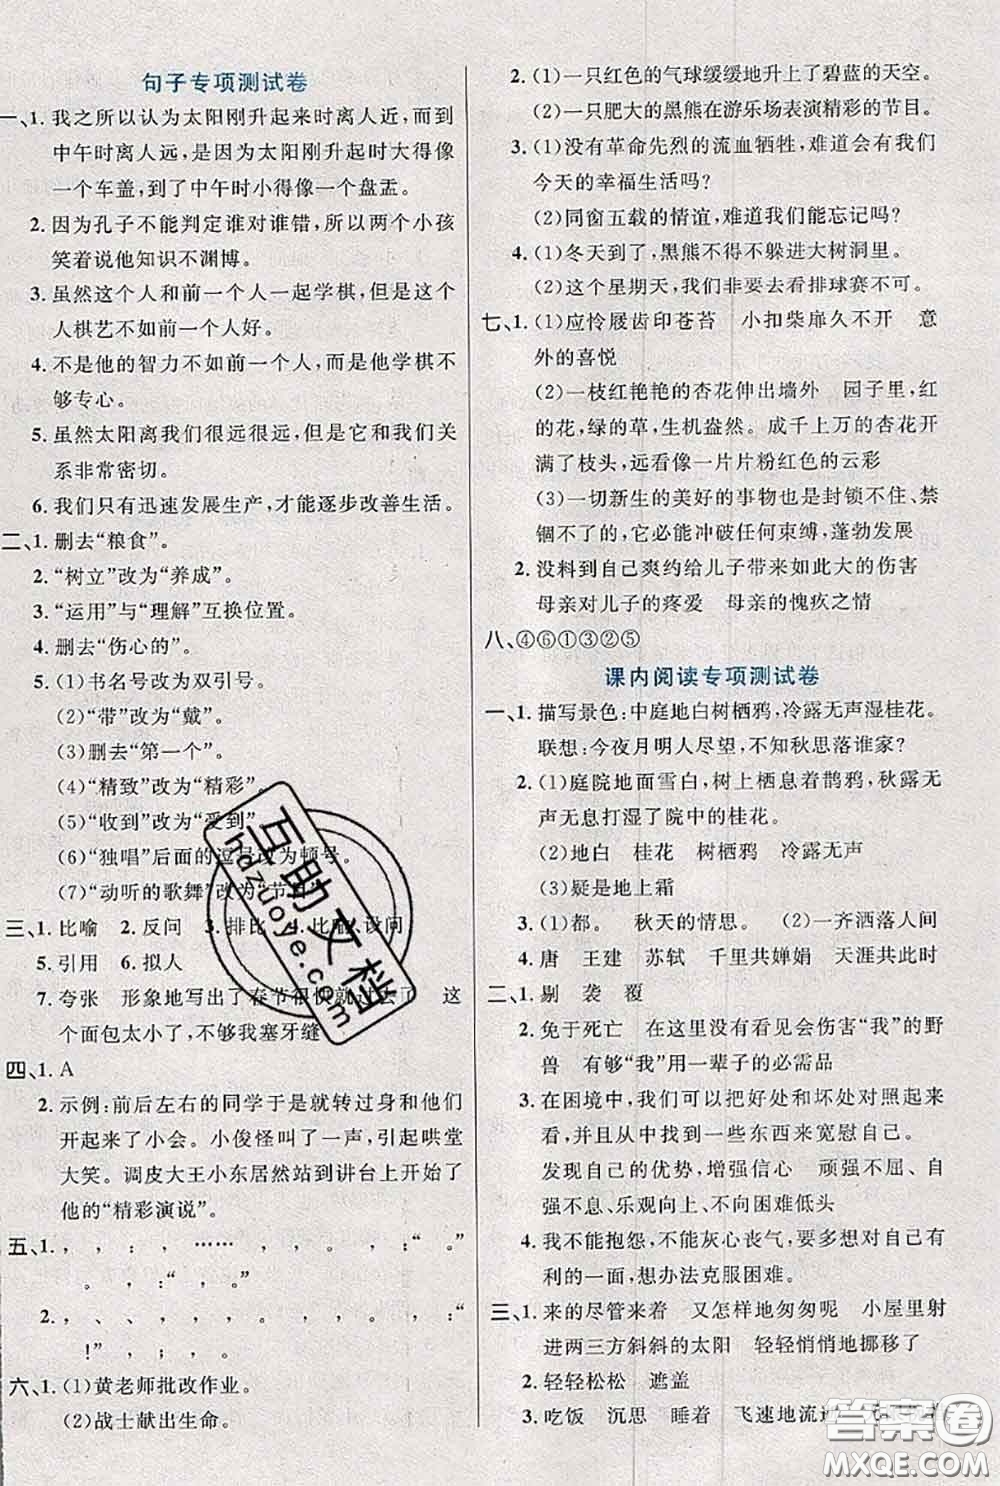 句子专项测试卷
一、1. 我之所以认为太阳刚升起来时离人近，而到
中午时离人远，是因为太阳刚升起时大得像
一个车盖，到了中午时小得像一个盘盂。
2. 因为孔子不能判定谁对谁错，所以两个小孩
笑着说他知识不渊博。
3. 虽然这个人和前一个人一起学棋，但是这个
人棋艺不如前一个人好。
4. 不是他的智力不如前一个人，而是他学棋不
够专心。
5. 虽然太阳离我们很远很远，但是它和我们关
系非常密切。
6. 我们只有迅速发展生产，才能逐步改善生活。
二、1. 删去“粮食”。
2. “树立”改为“养成”。
3. “运用”与“理解”互换位置。
4. 删去“伤心的”。
5. (1)书名号改为双引号。
(2)“带”改为“戴”。
(3)删去“第一个”。
(4)“精致”改为“精彩”。
(5)“收到”改为“受到”
(6)“独唱”后面的逗号改为顿号。
(7)“动听的歌舞”改为“节目”
三、1. 比喻 2. 反问 3. 排比 4. 比喻、设问
5. 引用 6. 拟人
7. 夸张 形象地写出了春节很快就过去了 这
个面包太小了，不够我塞牙缝
四、1. A
2. 示例：前后左右的同学于是就转过身和他们
开起来了小会。小俊怪叫了一声，引起哄堂
大笑。调皮大王小东居然站到讲台上开始了
他的“精彩演说”。
五、1. ， ， ； ， …… ， ， ， ：“ 。”
。 ， ：“ ， 。”
2. ， 、 、 ， ， ， 。 ， ：“
！” ， ， 。
六、1. (1)黄老师批改作业。
(2)战士献出生命。
2. (1)一只红色的气球缓缓地升上了碧蓝的天空。
(2)一只肥大的黑熊在游乐场表演精彩的节目。
3. (1)没有革命先烈的流血牺牲，难道会有我们
今天的幸福生活吗？
(2)同窗五载的情谊，难道我们能忘记吗？
4. (1)冬天到了，黑熊不得不躲进大树洞里。
(2)这个星期天，我们非要去看排球赛不可。
七、1. (1)应怜屐齿印苍苔 小扣柴扉久不开 意
外的喜悦
(2)一枝红艳艳的杏花伸出墙外 园子里，红
的花，绿的草，生机盎然。成千上万的杏花开
满了枝头，远看像一片片粉红色的云彩
(3)一切新生的美好的事物也是封锁不住、禁
锢不了的，它必能冲破任何束缚，蓬勃发展
2. 没料到自己爽约给儿子带来如此大的伤害
母亲对儿子的疼爱 母亲的愧疚之情
八、④⑥①③②⑤
课内阅读专项测试卷
一、1. 描写景色：中庭地白树栖鸦，冷露无声湿桂花。
联想：今夜月明人尽望，不知秋思落谁家？
2. (1)庭院地面雪白，树上栖息着鹊鸦，秋露无
声无息打湿了院中的桂花。
(2)地白 桂花 树栖鸦 冷露无声
(3)疑是地上霜
3. (1)都。 秋天的情思。 (2)一齐洒落人间
4. 唐 王建 苏轼 千里共婵娟 天涯共此时
二、1. 剔 袭 覆
2. 免于死亡 在这里没有看见会伤害“我”的野
兽 有够“我”用一辈子的必需品
3. 在困境中，我们可以把好处和坏处对照起来
看，并且从中找到一些东西来宽慰自己。
发现自己的优势，增强信心 顽强不屈、自
强不息、乐观向上、不向困难低头
4. 我不能抱怨，不能灰心丧气，要看到自己有
利的一面，想办法克服困难。
三、1. 来的尽管来着 又怎样地匆匆呢 小屋里射
进两三方斜斜的太阳 轻轻悄悄地挪移了
2. 轻轻松松 遮盖
3. 吃饭 沉思 睡着 飞速地流逝
互助文档
hdzuoye.com
答案圈
MXQE.COM